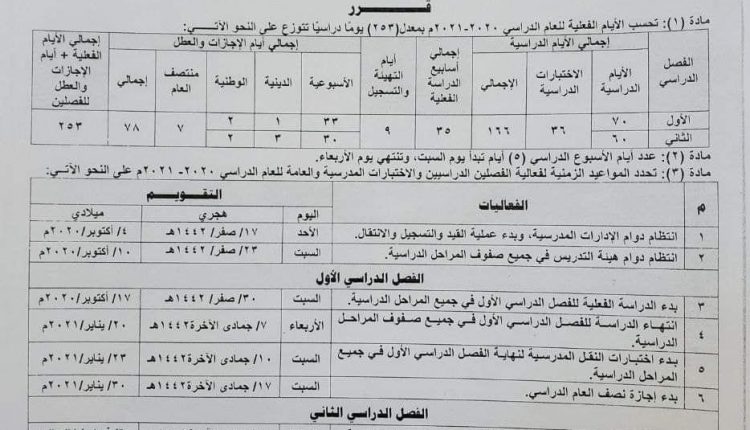 قـرر
مادة (١): تحسب الأيام الفعلية للعام الدراسي ٢٠٢٠-٢٠٢١م بمعدل (٢٥٣) يوماً دراسياً تتوزع على النحو الآتي:
الفصل الدراسي | إجمالي الأيام الدراسية | إجمالي أسابيع الدراسة الفعلية | أيام التهيئة والتسجيل | إجمالي أيام الإجازات والعطل | إجمالي الأيام الفعلية + أيام الإجازات والعطل للفصلين
الأيام الدراسية | الاختبارات الدراسية | الإجمالي | الأسبوعية | الدينية | الوطنية | منتصف العام | إجمالي
الأول | ٧٠ | ٣٦ | ١٦٦ | ٣٥ | ٩ | ٣٣ | ١ | ٢ | ٧ | ٧٨ | ٢٥٣
الثاني | ٦٠ | ٣٠ | ٣ | ٢
مادة (٢): عدد أيام الأسبوع الدراسي (٥) أيام تبدأ يوم السبت، وتنتهي يوم الأربعاء.
مادة (٣): تحدد المواعيد الزمنية لفعالية الفصلين الدراسيين والاختبارات المدرسية والعامة للعام الدراسي ٢٠٢٠-٢٠٢١م على النحو الآتي:
م | الفعاليات | التقويم
اليوم | هجري | ميلادي
١ | انتظام دوام الإدارات المدرسية، وبدء عملية القيد والتسجيل والانتقال. | الأحد | ١٧/ صفر/ ١٤٤٢هـ | ٤/ أكتوبر/٢٠٢٠م
٢ | انتظام دوام هيئة التدريس في جميع صفوف المراحل الدراسية. | السبت | ٢٣/ صفر/ ١٤٤٢هـ | ١٠/ أكتوبر/٢٠٢٠م
الفصل الدراسي الأول
٣ | بدء الدراسة الفعلية للفصل الدراسي الأول في جميع المراحل الدراسية. | السبت | ٣٠/ صفر/ ١٤٤٢هـ | ١٧/ أكتوبر/٢٠٢٠م
٤ | انتهاء الدراسة للفصل الدراسي الأول في جميع صفوف المراحل الدراسية. | الأربعاء | ٧/ جمادى الآخرة/١٤٤٢هـ | ٢٠/ يناير/٢٠٢١م
٥ | بدء اختبارات النقل المدرسية لنهاية الفصل الدراسي الأول في جميع المراحل الدراسية. | السبت | ١٠/ جمادى الآخرة/١٤٤٢هـ | ٢٣/ يناير/٢٠٢١م
٦ | بدء إجازة نصف العام الدراسي. | السبت | ١٧/ جمادى الآخرة/١٤٤٢هـ | ٣٠/ يناير/٢٠٢١م
الفصل الدراسي الثاني